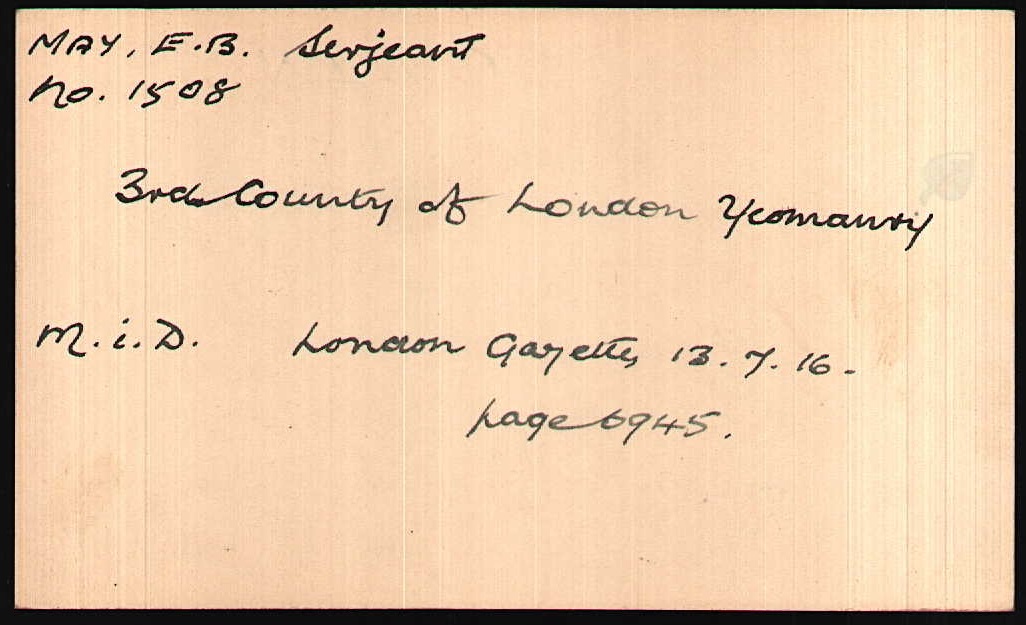 MAY, E.B. Serjeant
No. 1508
3rd County of London Yeomanry
M.i.D. London Gazette, 13.7.16.
page 6945.